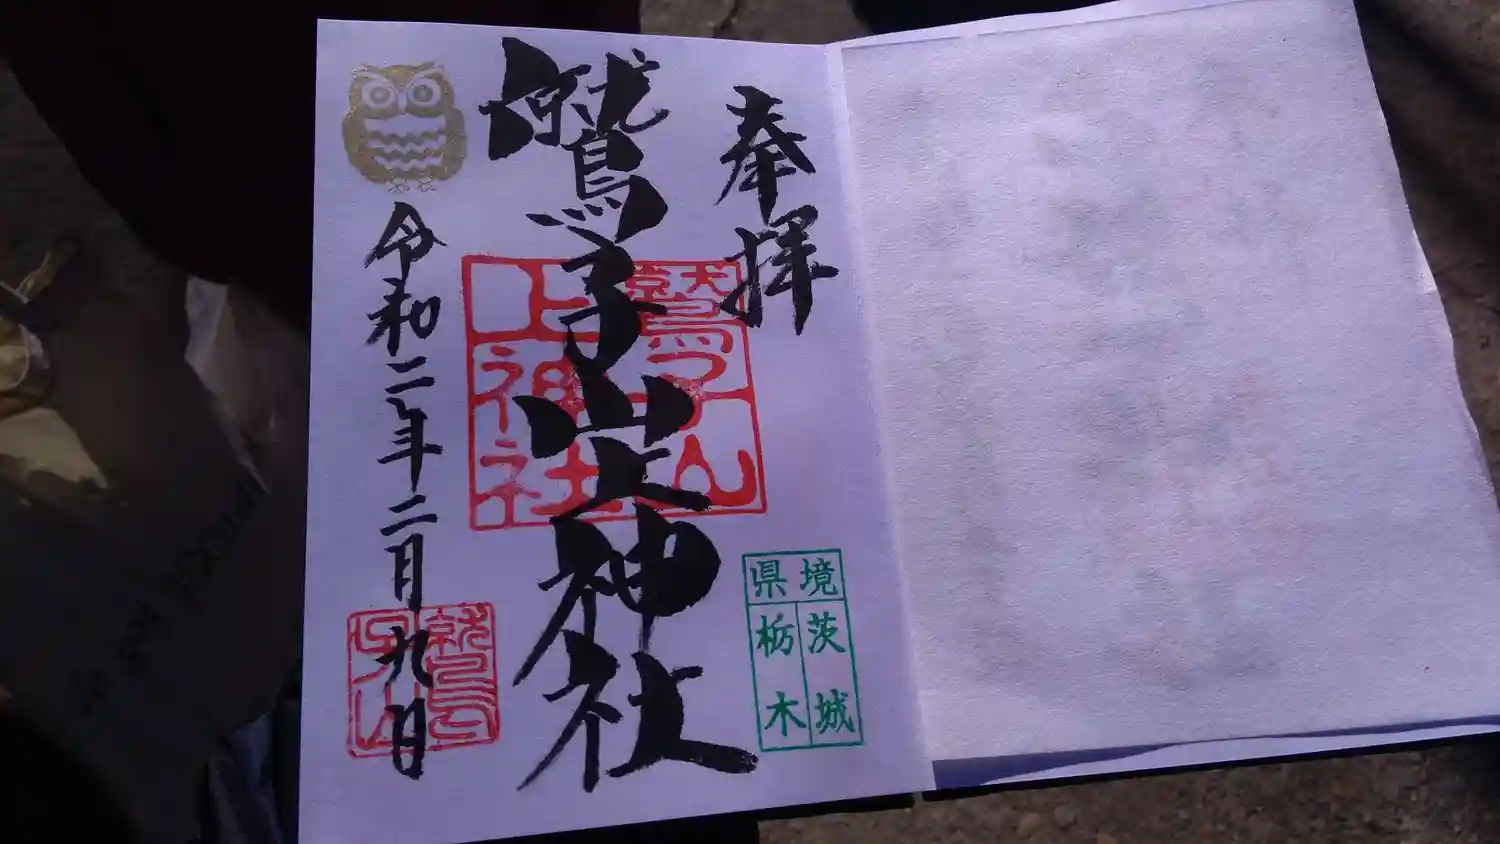 奉拝
鷲子山上神社
鷲子山
上神社
県境
茨城
栃木
令和二年二月九日
鷲
子山